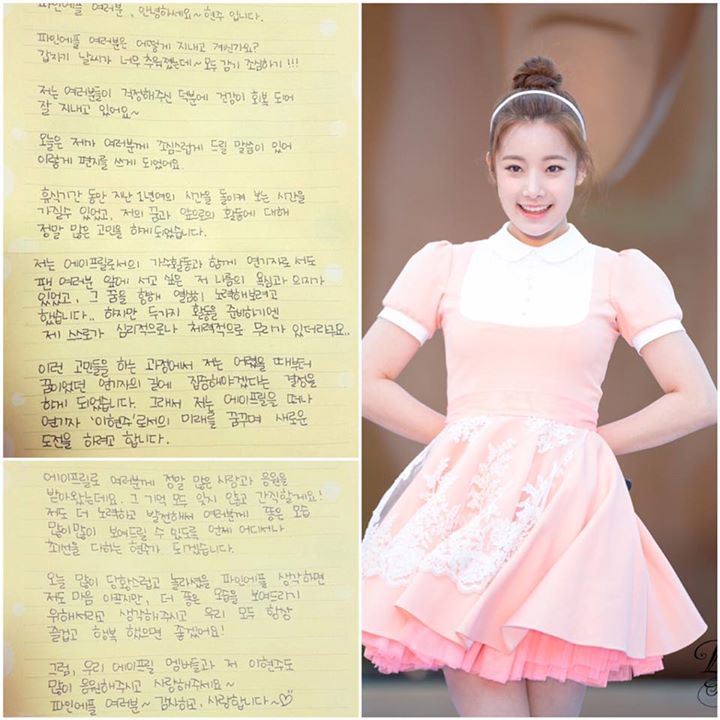 파인에플 여러분, 안녕하세요~ 현주 입니다.
파인에플 여러분은 어떻게 지내고 계신가요?
갑자기 날씨가 너무 추워졌는데~ 모두 감기 조심하기!!!
저는 여러분들이 걱정해주신 덕분에 건강이 회복 되어
잘 지내고 있어요~
오늘은 제가 여러분께 조심스럽게 드릴 말씀이 있어
이렇게 편지를 쓰게 되었어요.
휴식기간 동안 지난 1년여의 시간을 돌이켜 보는 시간을
가질수 있었고, 저의 꿈과 앞으로의 활동에 대해
정말 많은 고민을 하게되었습니다.
저는 에이프릴로서의 가수활동과 함께 연기자로서도
팬 여러분 앞에 서고 싶은 저 나름의 욕심과 의지가
있었고, 그 꿈을 향해 열심히 노력해보려고
했습니다.. 하지만 두가지 활동을 준비하기엔
제 스스로가 심리적으로나 체력적으로 무리가 있더라구요..
이런 고민들을 하는 과정에서 저는 어렸을 때부터
꿈이었던 연기자의 길에 집중해야겠다는 결정을
하게 되었습니다. 그래서 저는 에이프릴을 떠나
연기자 '이현주'로서의 미래를 꿈꾸며 새로운
도전을 하려고 합니다.
에이프릴로 여러분께 정말 많은 사랑과 응원을
받아왔는데요. 그 기억 모두 잊지 않고 간직할게요!
저도 더 노력하고 발전해서 여러분께 좋은 모습
많이많이 보여드릴 수 있도록 언제 어디서나
최선을 다하는 현주가 되겠습니다.
오늘 많이 당황스럽고 놀라셨을 파인에플 생각하면
저도 마음 아프지만, 더 좋은 모습을 보여드리기
위해서라고 생각해주시고 우리 모두 항상
즐겁고 행복 했으면 좋겠어요!
그럼, 우리 에이프릴 멤버들과 저 이현주도
많이 응원해주시고 사랑해주세요~
파인에플 여러분~ 감사하고, 사랑합니다~♡